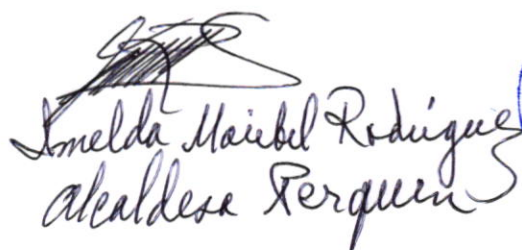 Imelda Maribel Rodríguez
alcaldesa Perquín